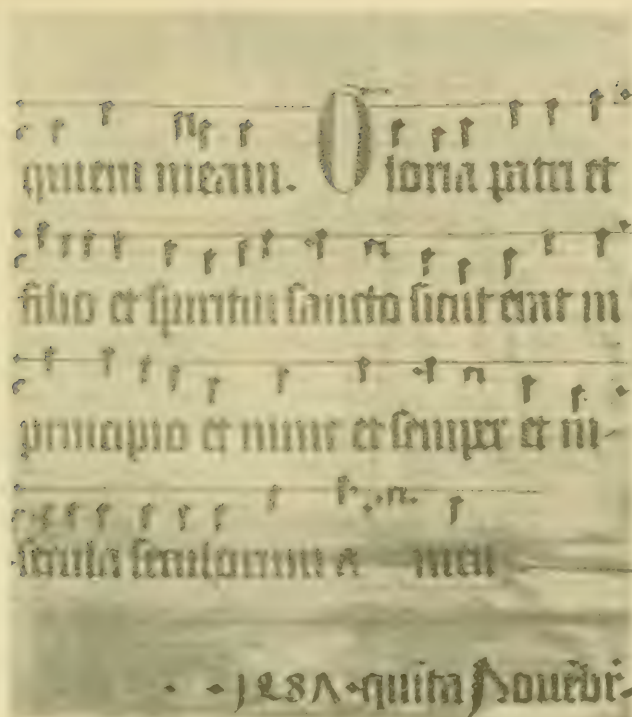 quiem meam. Gloria patri et
filio et spiritui sancto sicut erat in
principio et nunc et semper et in
secula seculorum a men
· 1487 · quita Nouēbr